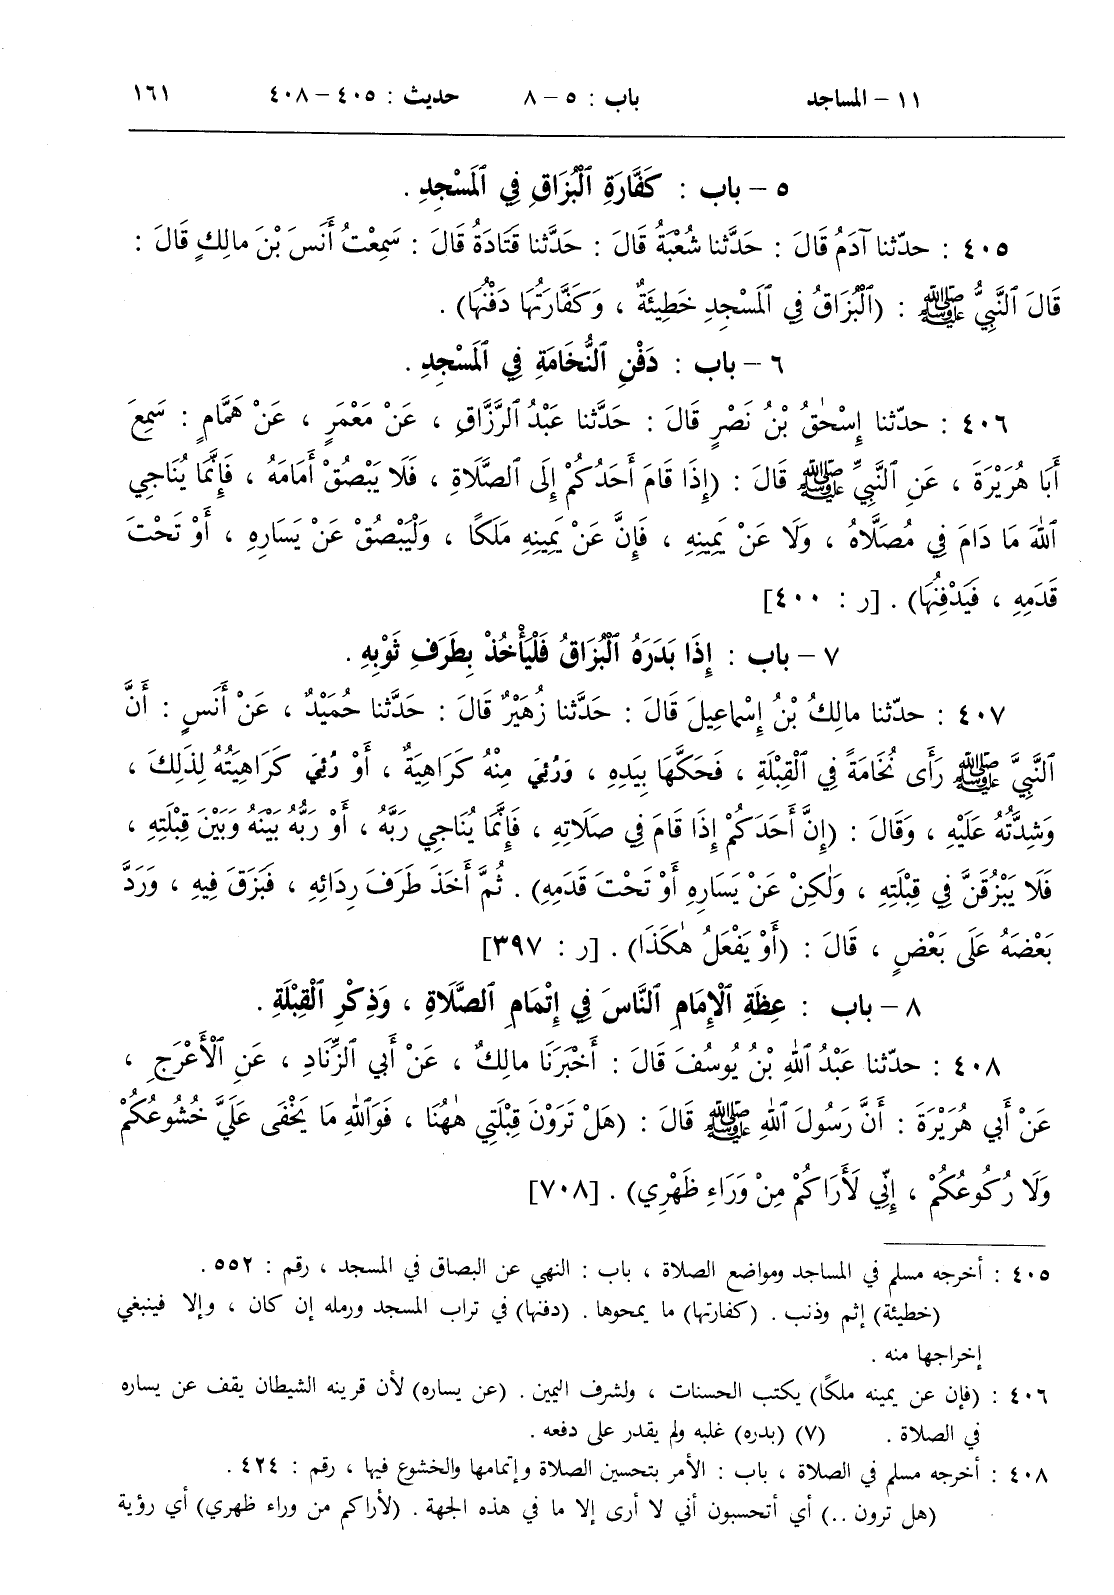 ١١ – المساجد باب : ٥ – ٨ حديث : ٤٠٥ – ٤٠٨ ١٦١
٥ – باب : كَفَّارَةِ ٱلْبُزَاقِ فِي ٱلْمَسْجِدِ .
٤٠٥ : حدّثنا آدَمُ قَالَ : حَدَّثنا شُعْبَةُ قَالَ : حَدَّثنا قَتَادَةُ قَالَ : سَمِعْتُ أَنَسَ بْنَ مالِكٍ قَالَ :
قَالَ ٱلنَّبِيُّ ﷺ : (ٱلْبُزَاقُ فِي ٱلْمَسْجِدِ خَطِيئَةٌ ، وَكَفَّارَتُهَا دَفْنُهَا) .
٦ – باب : دَفْنِ ٱلنُّخَامَةِ فِي ٱلْمَسْجِدِ .
٤٠٦ : حدّثنا إِسْحٰقُ بْنُ نَصْرٍ قَالَ : حَدَّثنا عَبْدُ ٱلرَّزَّاقِ ، عَنْ مَعْمَرٍ ، عَنْ هَمَّامٍ : سَمِعَ
أَبَا هُرَيْرَةَ ، عَنِ ٱلنَّبِيِّ ﷺ قَالَ : (إِذَا قَامَ أَحَدُكُمْ إِلَى ٱلصَّلَاةِ ، فَلَا يَبْصُقْ أَمَامَهُ ، فَإِنَّمَا يُنَاجِي
ٱللهَ مَا دَامَ فِي مُصَلَّاهُ ، وَلَا عَنْ يَمِينِهِ ، فَإِنَّ عَنْ يَمِينِهِ مَلَكًا ، وَلْيَبْصُقْ عَنْ يَسَارِهِ ، أَوْ تَحْتَ
قَدَمِهِ ، فَيَدْفِنُهَا) . [ر : ٤٠٠]
٧ – باب : إِذَا بَدَرَهُ ٱلْبُزَاقُ فَلْيَأْخُذْ بِطَرَفِ ثَوْبِهِ .
٤٠٧ : حدّثنا مالِكُ بْنُ إِسْماعِيلَ قَالَ : حَدَّثنا زُهَيْرٌ قَالَ : حَدَّثنا حُمَيْدٌ ، عَنْ أَنَسٍ : أَنَّ
ٱلنَّبِيَّ ﷺ رَأَى نُخَامَةً فِي ٱلْقِبْلَةِ ، فَحَكَّهَا بِيَدِهِ ، وَرُئِيَ مِنْهُ كَرَاهِيَةٌ ، أَوْ رُئِيَ كَرَاهِيَتُهُ لِذَلِكَ ،
وَشِدَّتُهُ عَلَيْهِ ، وَقَالَ : (إِنَّ أَحَدَكُمْ إِذَا قَامَ فِي صَلَاتِهِ ، فَإِنَّمَا يُنَاجِي رَبَّهُ ، أَوْ رَبُّهُ بَيْنَهُ وَبَيْنَ قِبْلَتِهِ ،
فَلَا يَبْزُقَنَّ فِي قِبْلَتِهِ ، وَلٰكِنْ عَنْ يَسَارِهِ أَوْ تَحْتَ قَدَمِهِ) . ثُمَّ أَخَذَ طَرَفَ رِدَائِهِ ، فَبَزَقَ فِيهِ ، وَرَدَّ
بَعْضَهُ عَلَى بَعْضٍ ، قَالَ : (أَوْ يَفْعَلُ هٰكَذَا) . [ر : ٣٩٧]
٨ – باب : عِظَةِ ٱلْإِمَامِ ٱلنَّاسَ فِي إِتْمَامِ ٱلصَّلَاةِ ، وَذِكْرِ ٱلْقِبْلَةِ .
٤٠٨ : حدّثنا عَبْدُ ٱللهِ بْنُ يُوسُفَ قَالَ : أَخْبَرَنَا مالِكٌ ، عَنْ أَبِي ٱلزِّنَادِ ، عَنِ ٱلْأَعْرَجِ ،
عَنْ أَبِي هُرَيْرَةَ : أَنَّ رَسُولَ ٱللهِ ﷺ قَالَ : (هَلْ تَرَوْنَ قِبْلَتِي هٰهُنَا ، فَوَٱللهِ مَا يَخْفَى عَلَيَّ خُشُوعُكُمْ
وَلَا رُكُوعُكُمْ ، إِنِّي لَأَرَاكُمْ مِنْ وَرَاءِ ظَهْرِي) . [٧٠٨]
٤٠٥ : أخرجه مسلم في المساجد ومواضع الصلاة ، باب : النهي عن البصاق في المسجد ، رقم : ٥٥٢ .
(خطيئة) إثم وذنب . (كفارتها) ما يمحوها . (دفنها) في تراب المسجد ورمله إن كان ، وإلا فينبغي
إخراجها منه .
٤٠٦ : (فإن عن يمينه ملكًا) يكتب الحسنات ، ولشرف اليمين . (عن يساره) لأن قرينه الشيطان يقف عن يساره
في الصلاة . (٧) (بدره) غلبه ولم يقدر على دفعه .
٤٠٨ : أخرجه مسلم في الصلاة ، باب : الأمر بتحسين الصلاة وإتمامها والخشوع فيها ، رقم : ٤٢٤ .
(هل ترون ..) أي أتحسبون أني لا أرى إلا ما في هذه الجهة . (لأراكم من وراء ظهري) أي رؤية